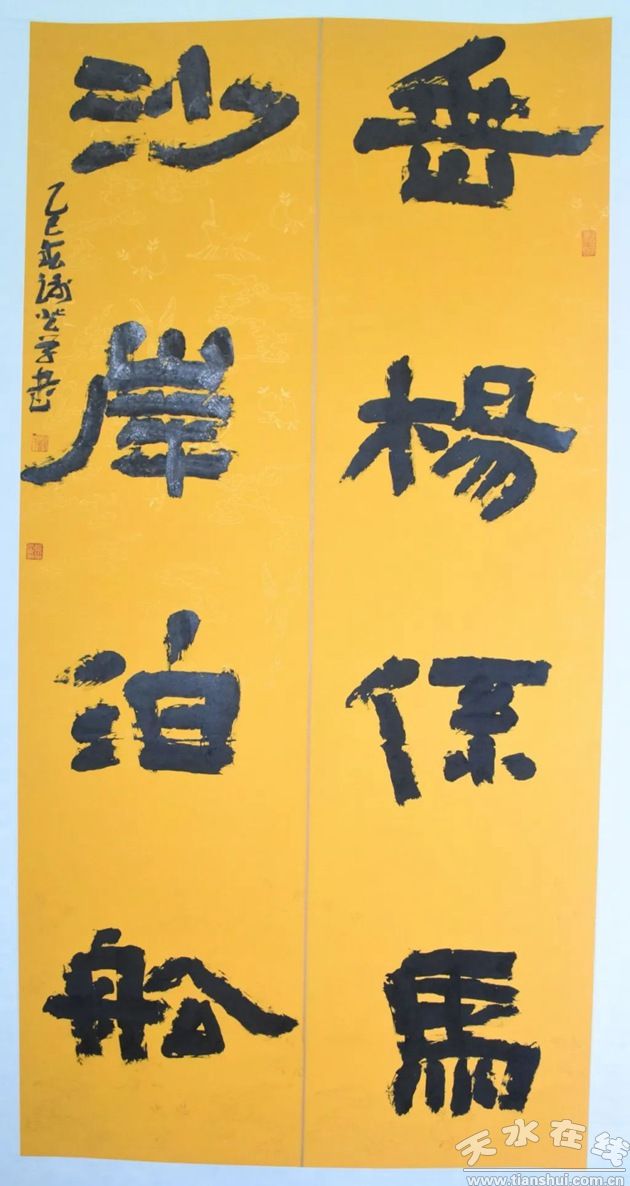 垂楊係馬
沙岸泊舩
乙巳春學書
天水在线
www.tianshui.com.cn